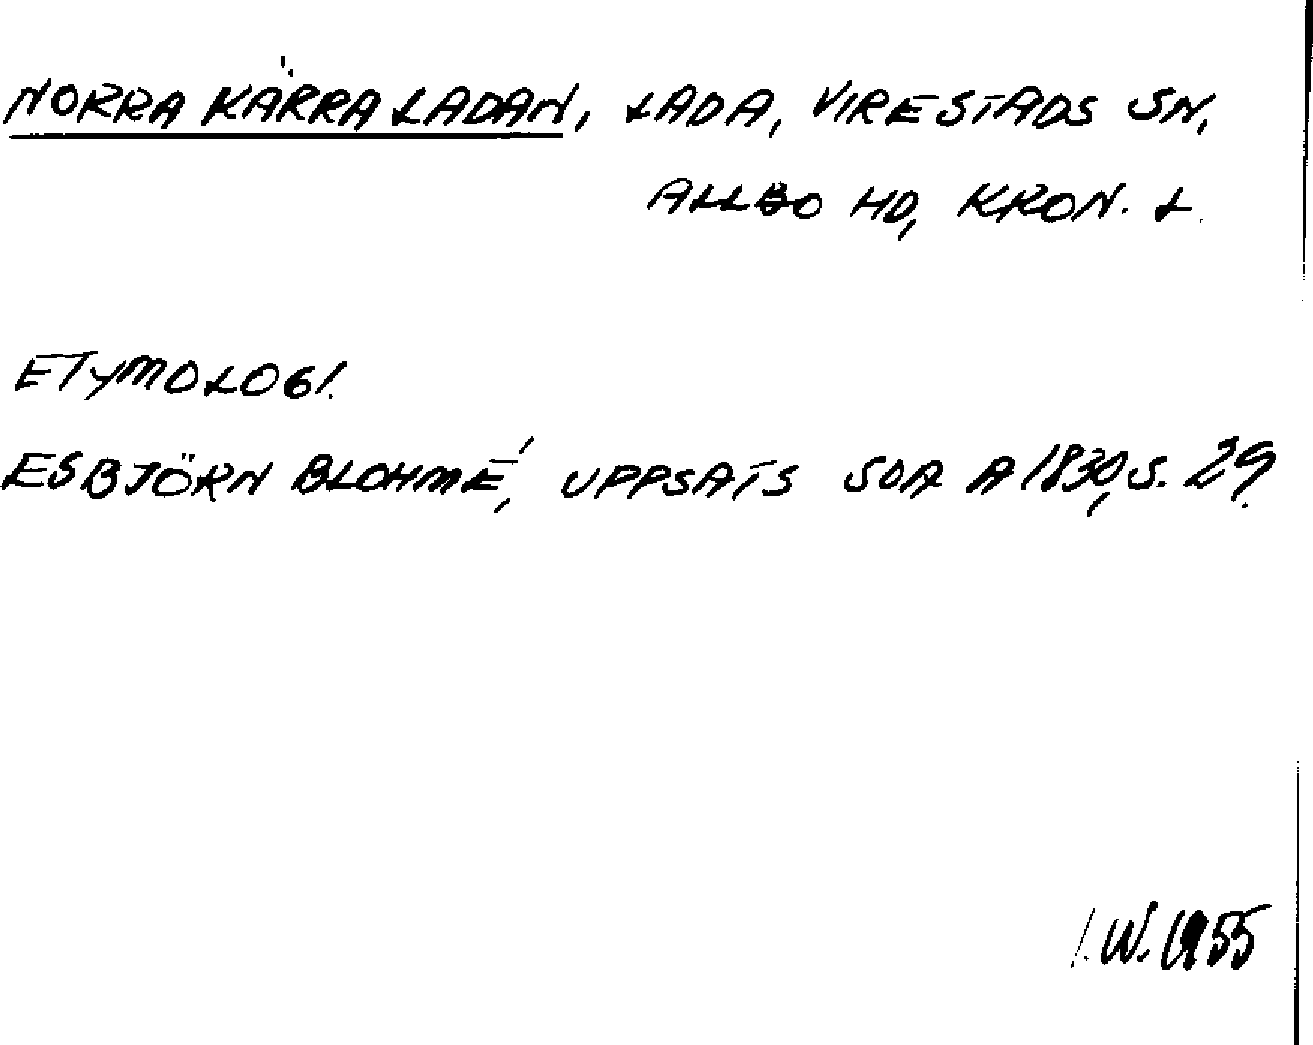 NORRA KÄRRALADAN, LADA, VIRESTADS SN,
ALLBO HD, KRON. L.
ETYMOLOGI.
ESBJÖRN BLOHMÉ, UPPSATS SOA A 1830, S. 29.
I.W. 1955